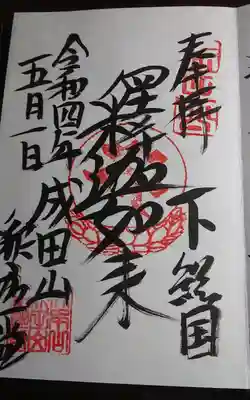 奉拝
下総国
釈迦如来
令和四年
五月一日
成田山